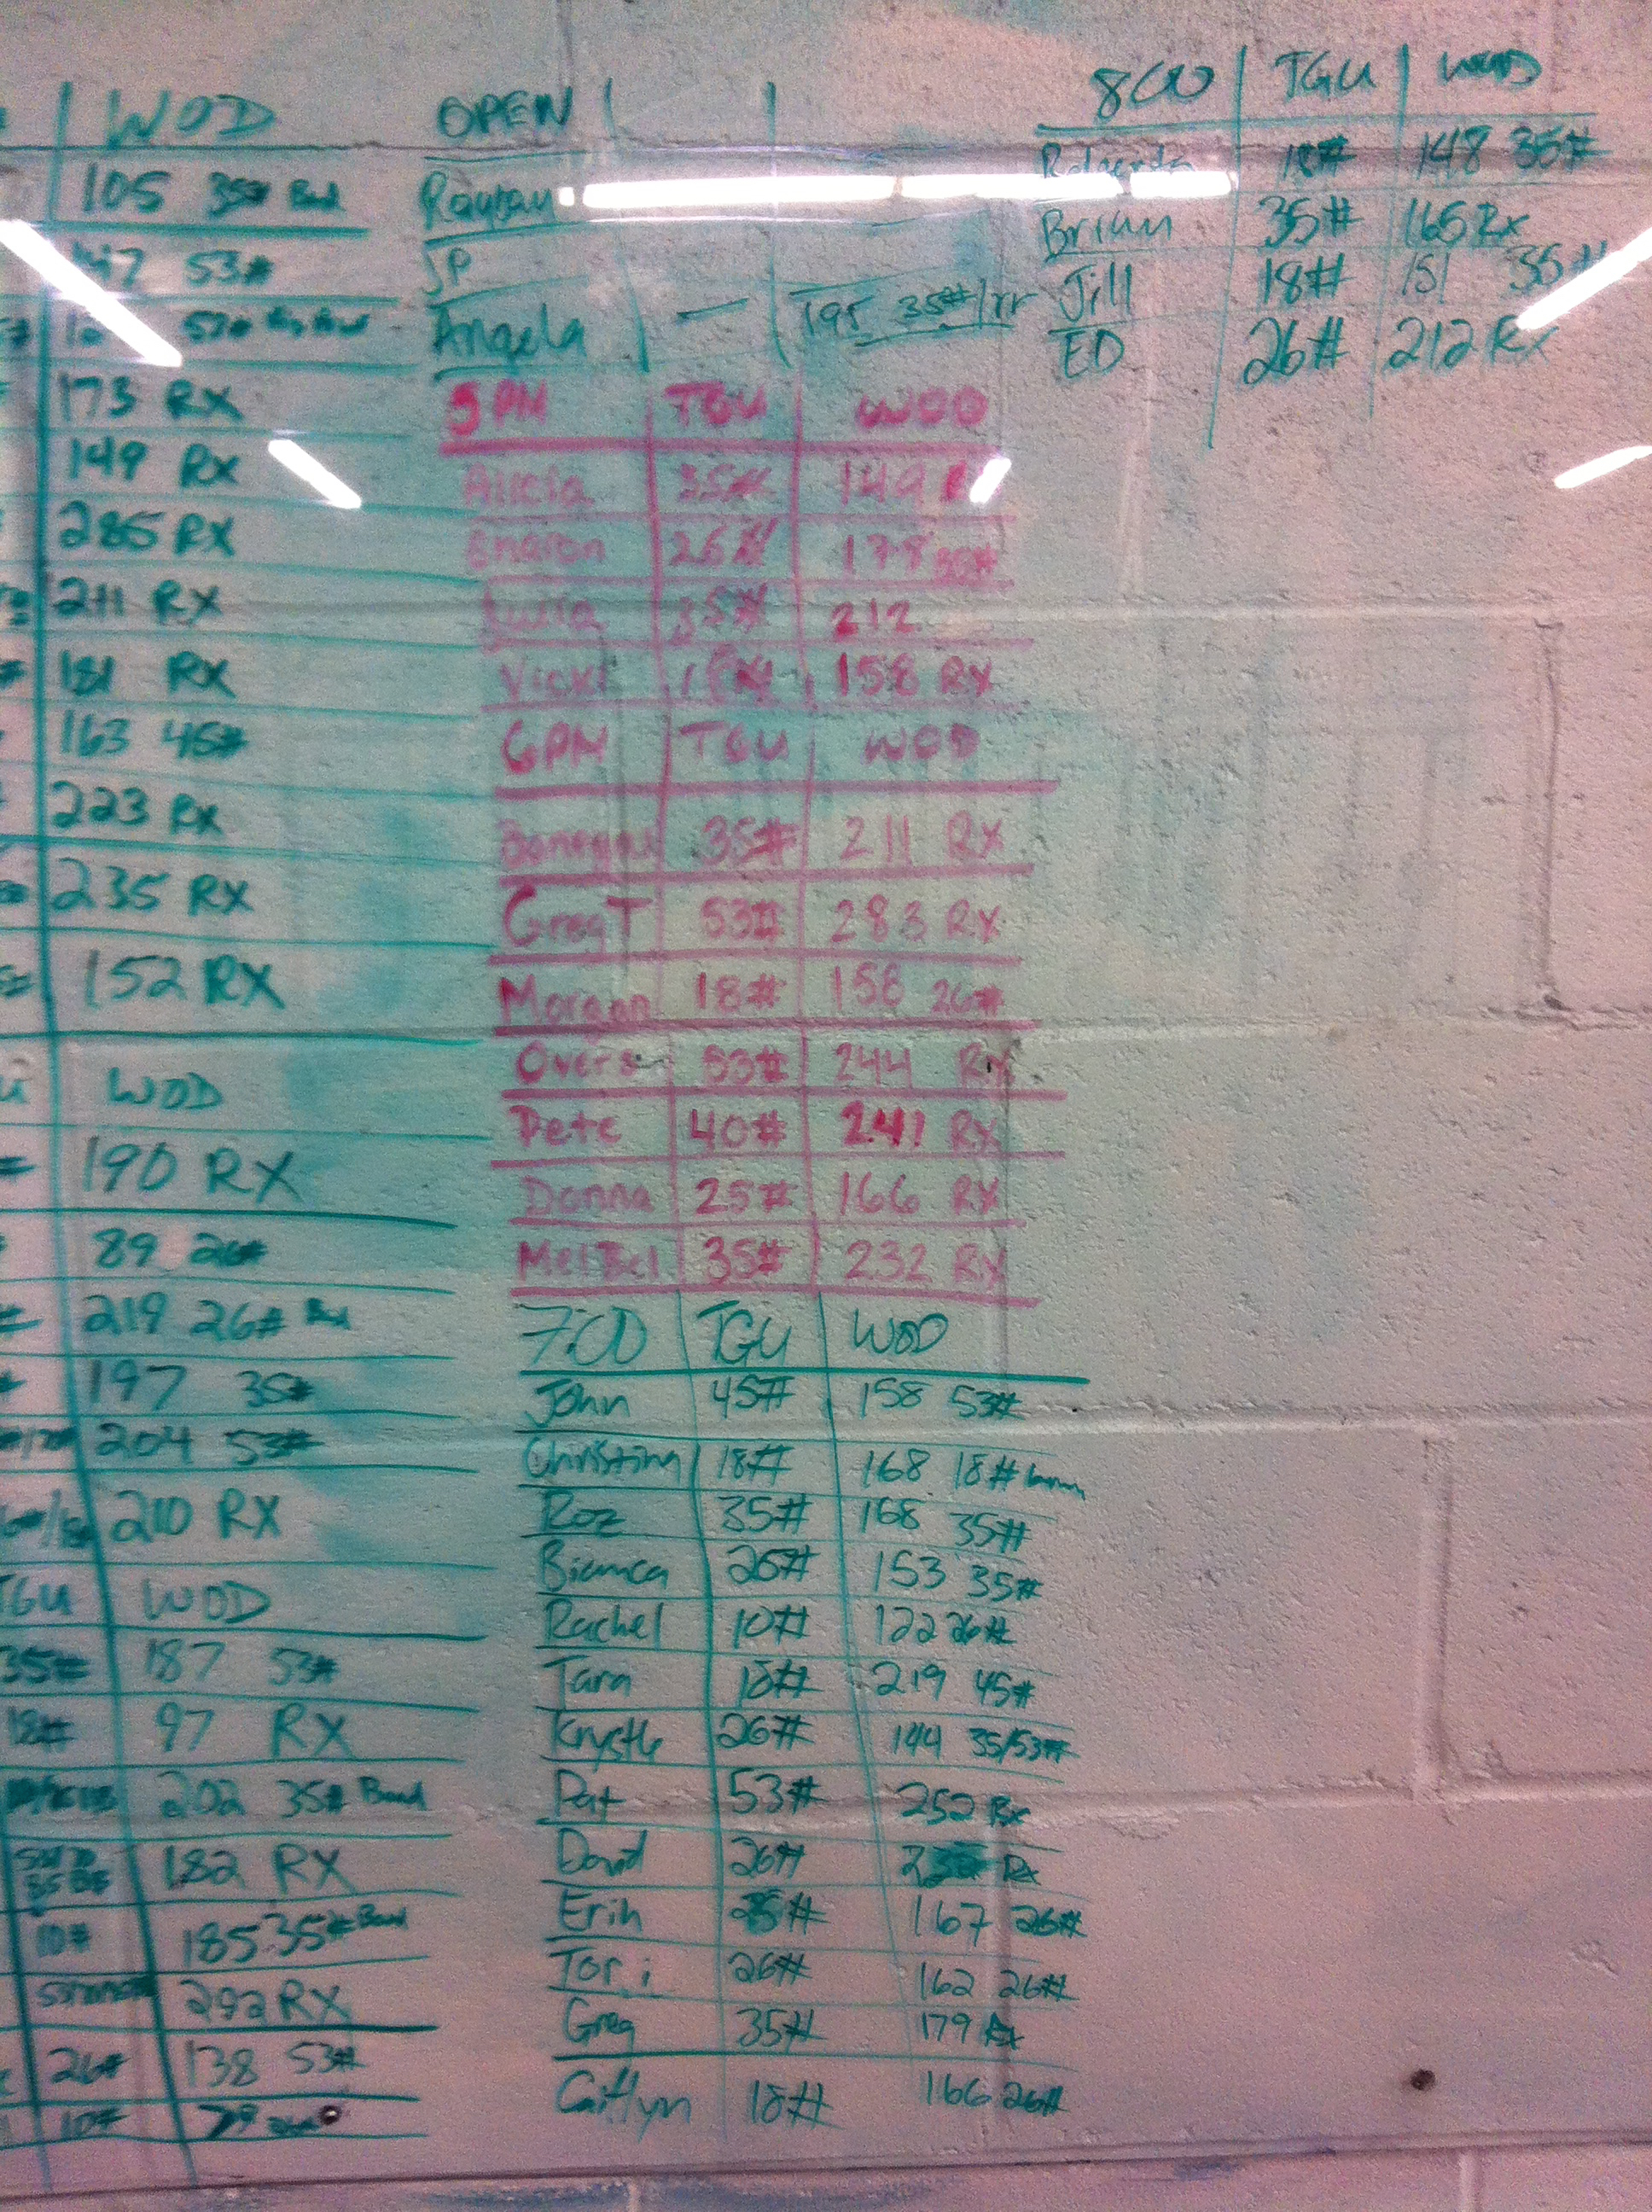 WOD
105 35# Band
53#
173 RX
149 RX
285 RX
211 RX
181 RX
163 45#
223 RX
235 RX
152 RX
WOD
190 RX
89 26#
219 26#
197 35#
204 53#
210 RX
TGU WOD
35# 187 53#
18# 97 RX
202 35# Band
182 RX
10# 185 35# Band
292 RX
26# 138 53#
10#
OPEN
JP
Angela — 195 35#/rr
5PM TGU WOD
Alicia 35# 149
Sharon 26# 178
35# 212
Vicki 158 RX
6PM TGU WOD
35# 211 RX
Greg T 53# 283 RX
Morgan 18# 158 26#
53# 244 RX
Pete 40# 241 RX
Donna 25# 166 RX
Mel Bel 35# 232 RX
7:00 TGU WOD
John 45# 158 53#
Christina 18# 168 18#
Roz 35# 168 35#
Bianca 26# 153 35#
Rachel 10# 122 26#
Tara 18# 219 45#
Krystle 26# 144 35/53#
Pat 53# 252 Rx
David 26# Rx
Erin 167 26#
Tori 26# 162 26#
Greg 35# 179 Rx
Caitlyn 18# 166 26#
800 TGU WOD
18# 148 35#
Brian 35# 165 Rx
Jill 18# 151 35#
ED 26# 212 Rx